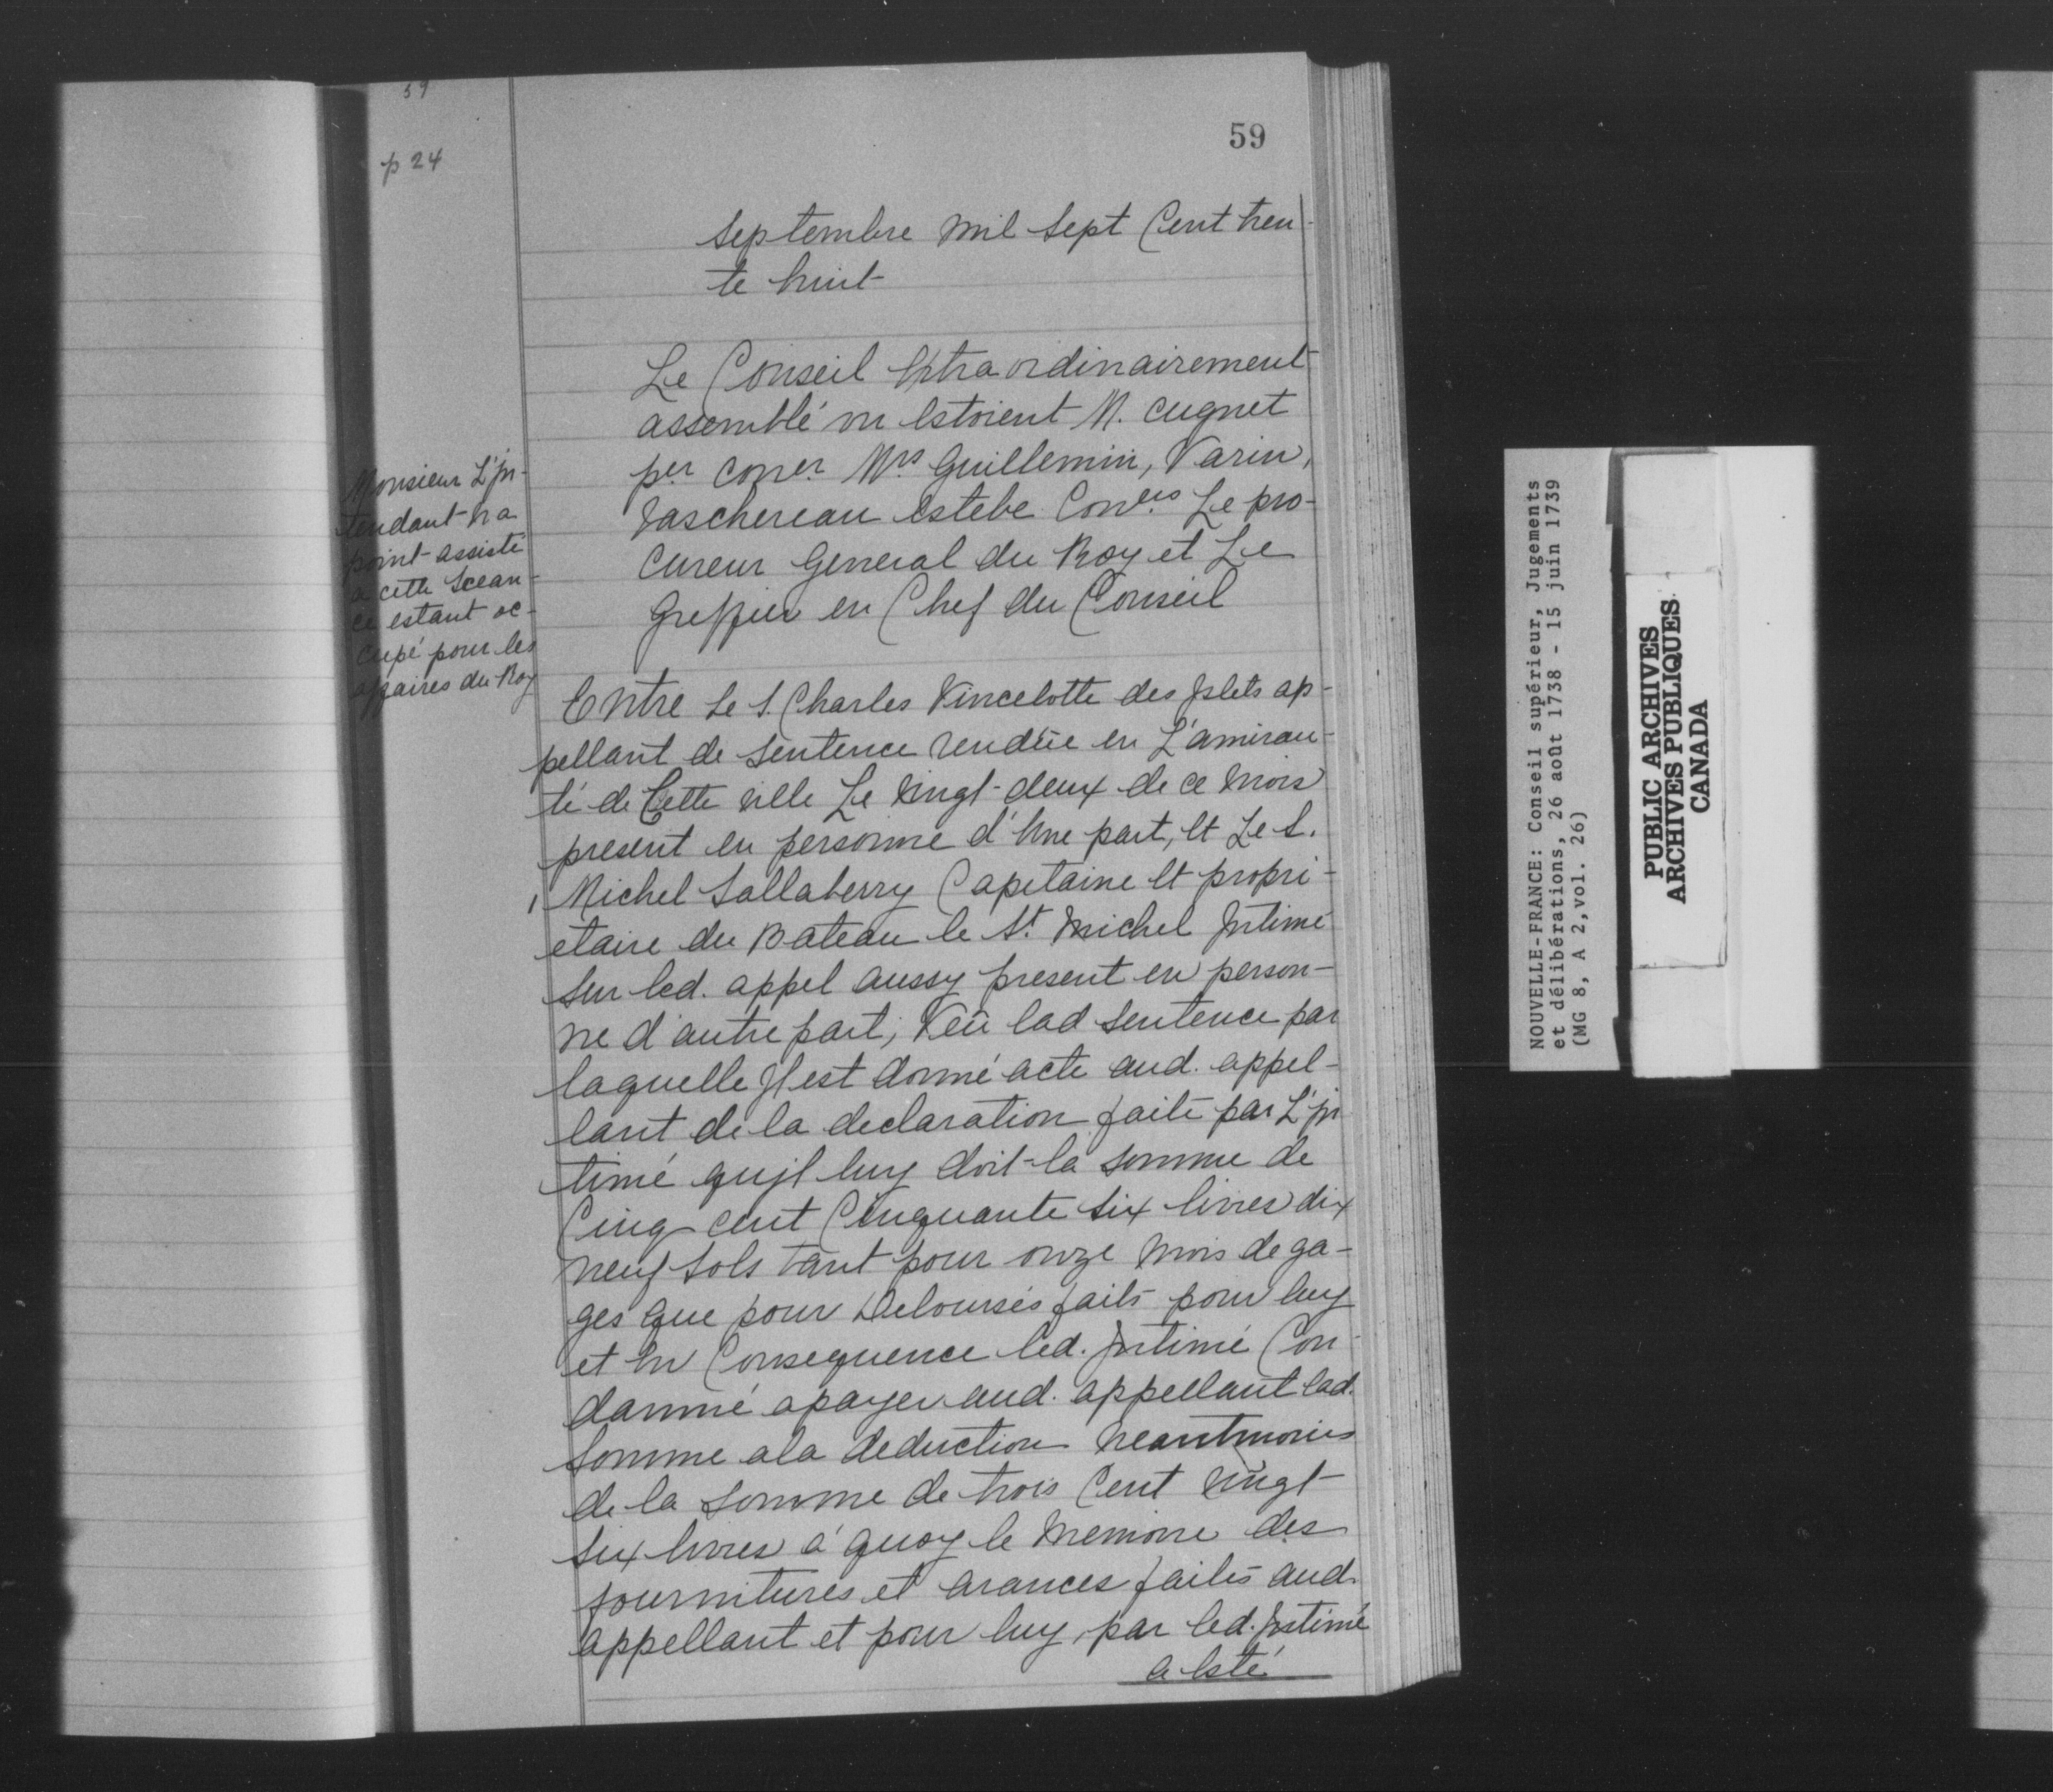 59
p 24
59
septembre mil sept Cent tren-
te huit
Le Conseil Extraordinairement
assemblé ou Estoient M. Cugnet
per coner Mrs Guillemin, Varin,
Taschereau Estebe Coners Le pro-
cureur General du Roy et Le
Greffier en Chef du Conseil
Monsieur L'jn-
tendant n'a
point assisté
a cette Scean-
ce estant oc-
cupé pour les
affaires du Roy
Entre Le S. Charles Vincelotte des jslets ap-
pellant de Sentence rendüe en L'amirau-
té de Cette ville Le vingt-deux de ce mois
present en personne d'Une part, Et Le S.
Michel Sallaberry Capitaine Et propri-
etaire du Bateau le St. Michel jntimé
sur led. appel aussy present en person-
ne d'autre part; Veü lad sentence par
laquelle jl est donné acte aud. appel-
lant de la declaration faite par L'jn
timé qu'jl luy doit la somme de
Cinq cent Cinquante six livres dix
neuf sols tant pour onze mois de ga-
ges que pour Deboursés faits pour luy
et En Consequence led. jntimé Con-
damné a payer aud. appellant lad.
somme a la deduction neantmoins
de la somme de trois Cent vingt
six livres á quoy le memoire des
fournitures et avances faites aud.
appellant et pour luy par led. jntimé
a Esté
NOUVELLE-FRANCE: Conseil supérieur, Jugements
et délibérations, 26 août 1738 - 15 juin 1739
(MG 8, A 2,vol. 26)
PUBLIC ARCHIVES
ARCHIVES PUBLIQUES
CANADA